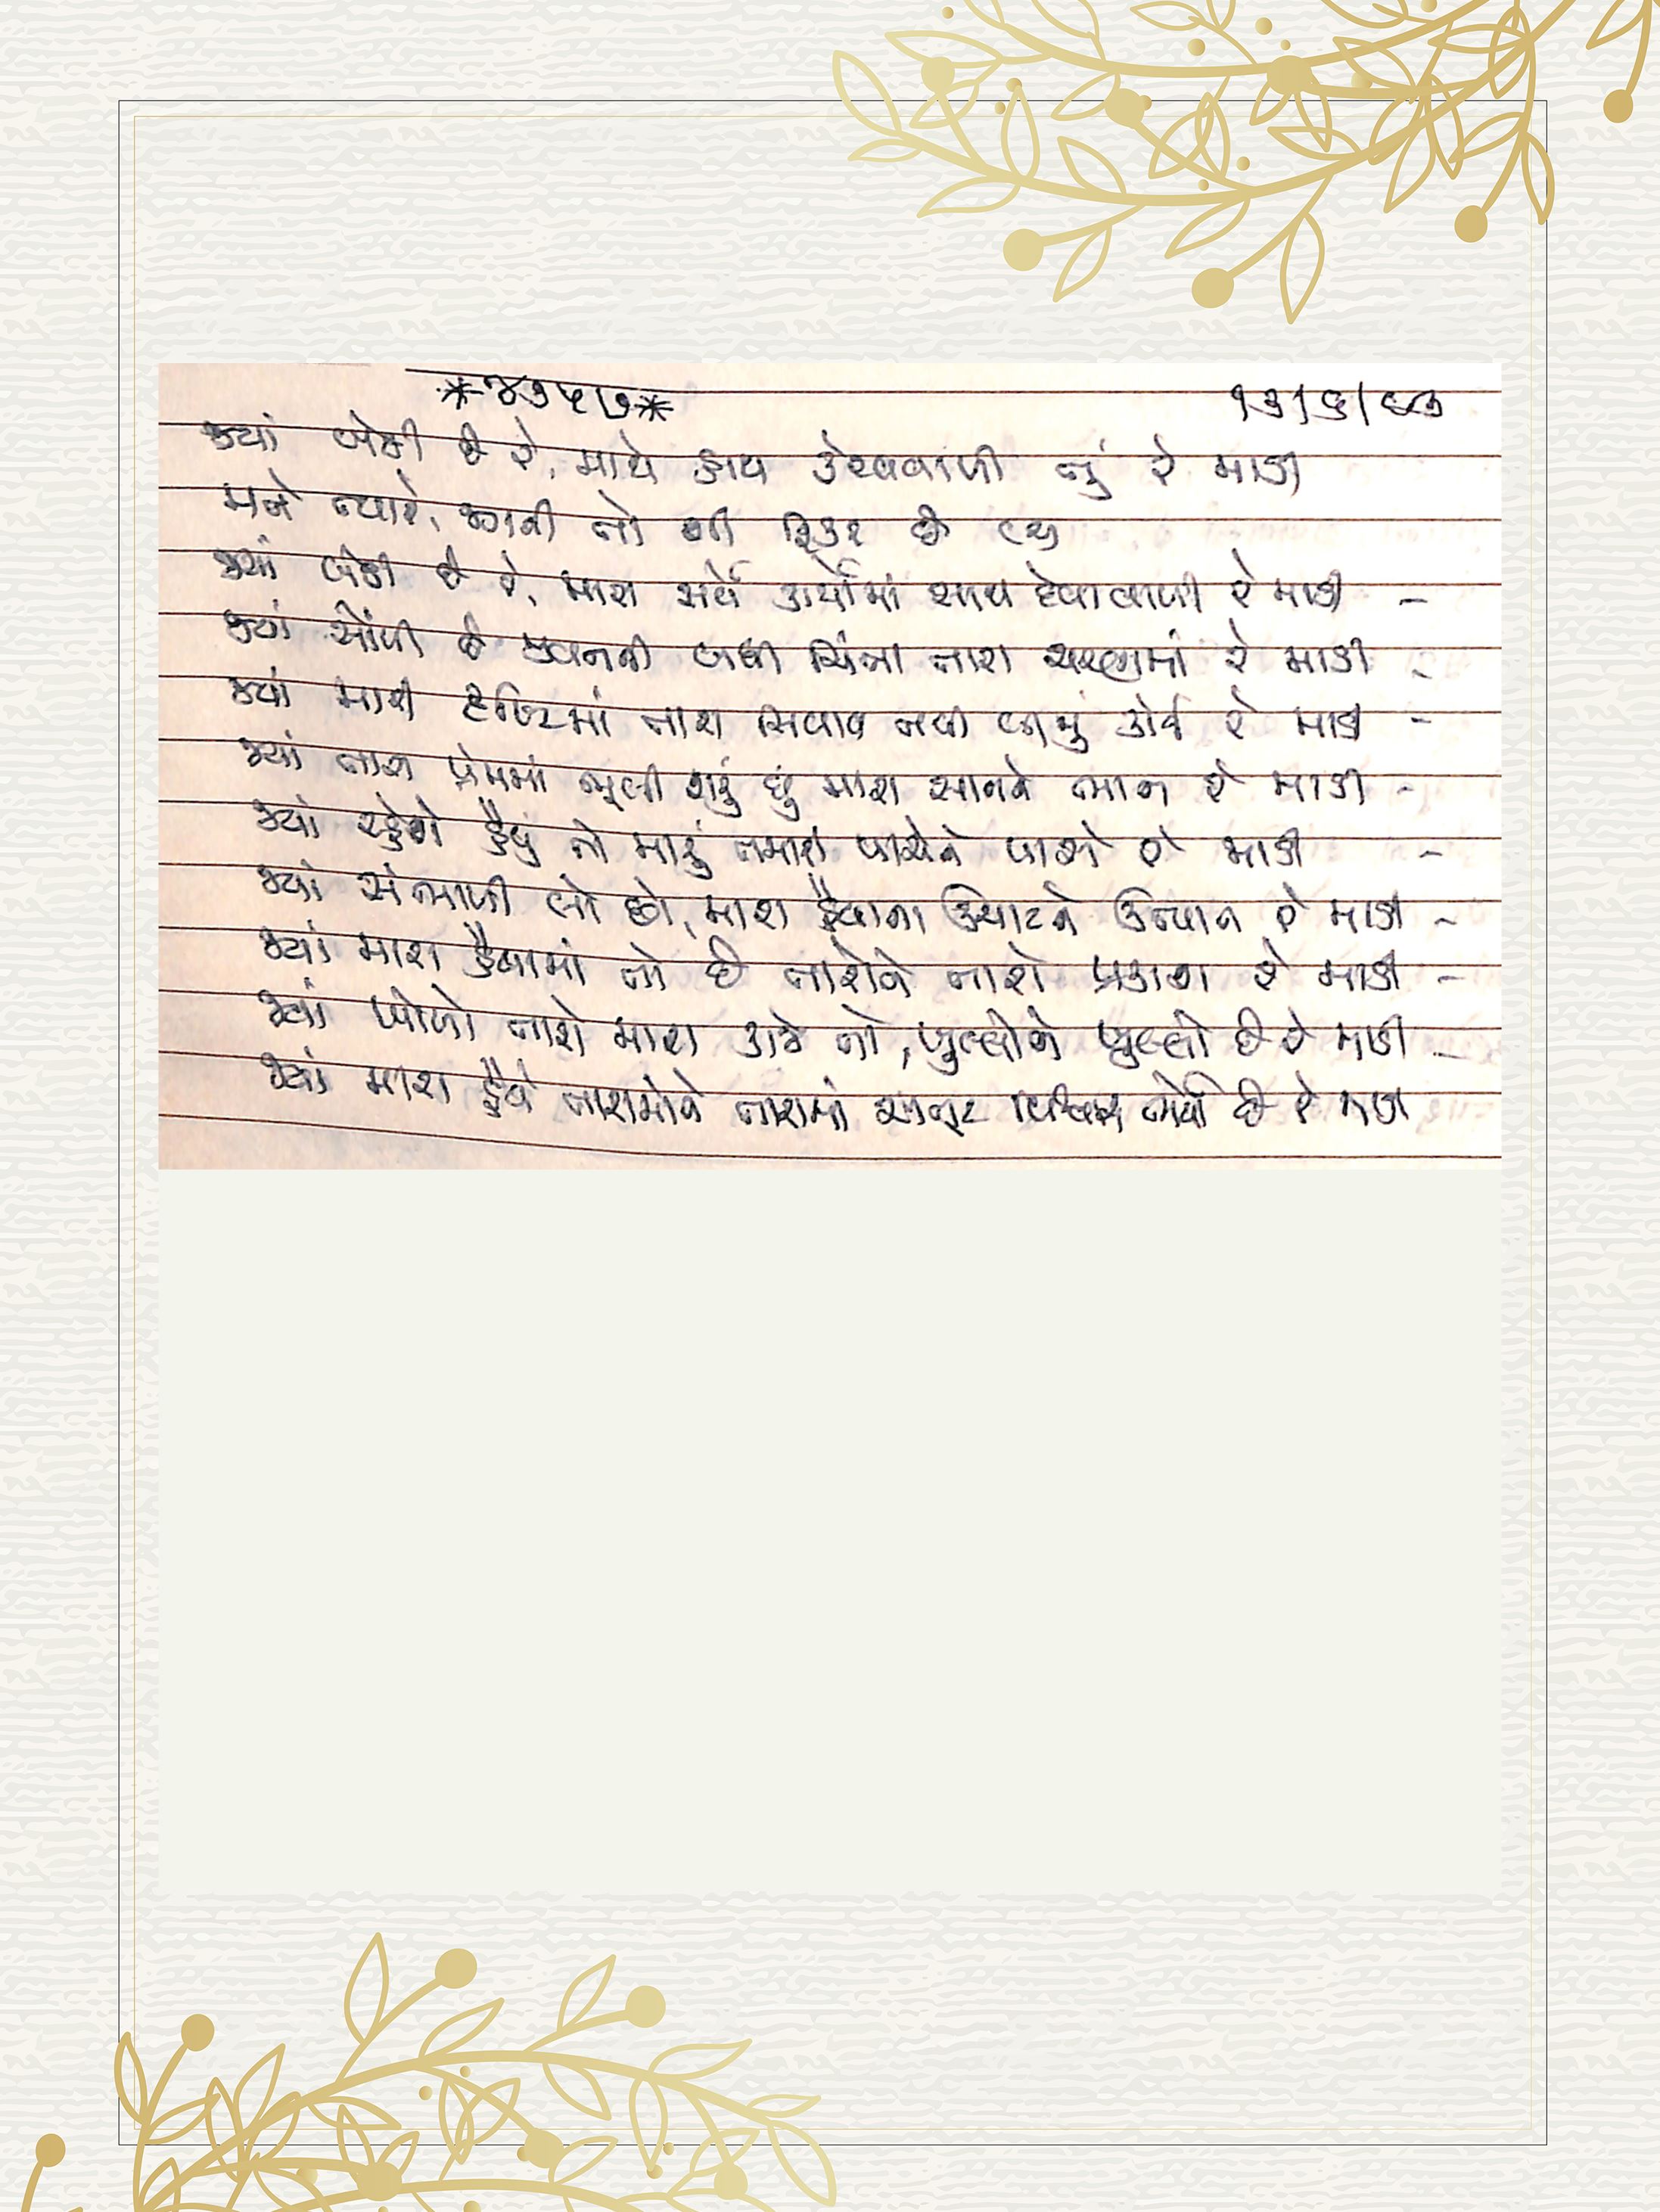 *૪૭૫૭*
૧૩/૬/૯૩
જ્યાં બેઠી છે રે, માથે હાથ ફેરવવાળી તું રે માડી
મને ત્યારે, જગની તો શી ફિકર છે
જ્યાં બેઠી છે રે, મારા સર્વે કાર્યોમાં સાથ દેવાવાળી રે માડી -
જ્યાં સોંપી છે જીવનની બધી ચિંતા તારા ચરણમાં રે માડી -
જ્યાં મારી દૃષ્ટિમાં તારા સિવાય નથી બીજું કોઈ રે માડી -
જ્યાં તારા પ્રેમમાં ભૂલી શકું છું મારા સાનને ભાન રે માડી -
જ્યાં રહેશે હૈયું તો મારું તમારી પાસેને પાસે રે માડી -
જ્યાં સંભાળી લો છો, મારા હૈયાના ઉચાટને ઉત્પાત રે માડી -
જ્યાં મારા હૈયામાં તો છે તારોને તારો પ્રકાશ રે માડી -
જ્યાં ખોળો તારો મારા કાજે તો, ખુલ્લોને ખુલ્લો છે રે માડી -
જ્યાં મારા હૈયે તારામાંને તારામાં અતૂટ વિશ્વાસ ભર્યો છે રે માડી